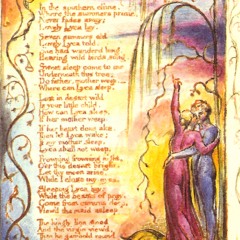 In the southern clime,
Where the summers prime,
Never fades away;
Lovely Lyca lay.
Seven summers old
Lovely Lyca told,
She had wanderd long,
Hearing wild birds song.
Sweet sleep come to me
Underneath this tree;
Do father, mother weep,
Where can Lyca sleep.
Lost in desart wild
Is your little child.
How can Lyca sleep,
If her mother weep.
If her heart does ake,
Then let Lyca wake;
If my mother sleep,
Lyca shall not weep.
Frowning frowning night,
O'er this desart bright,
Let thy moon arise,
While I close my eyes.
Sleeping Lyca lay;
While the beasts of prey,
Come from caverns deep,
View'd the maid asleep
The kingly lion stood
And the virgin view'd,
Then he gambold round